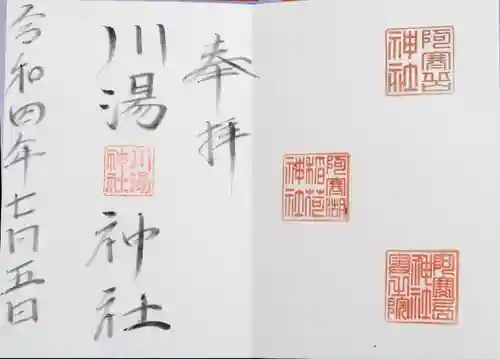 奉拝
川湯神社
川湯神社
令和四年七月五日
阿寒岳神社
阿寒湖稲荷神社